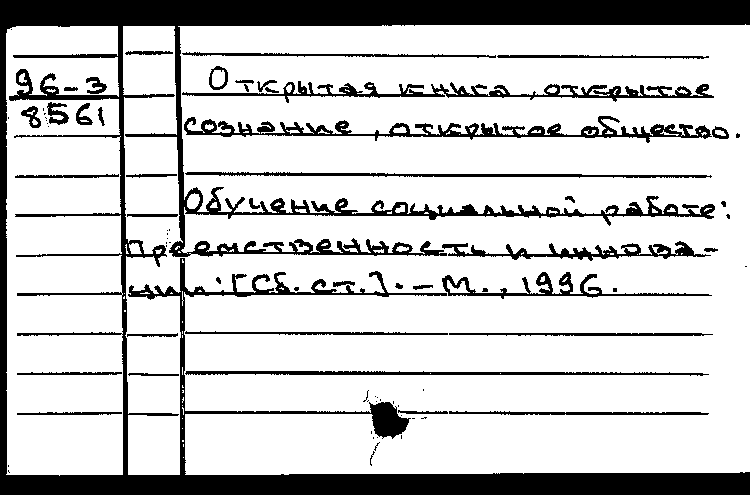 96-3
8561
Открытая книга, открытое
сознание, открытое общество.
Обучение социальной работе:
Преемственность и иннова-
ции: [Сб. ст.]. - М., 1996.